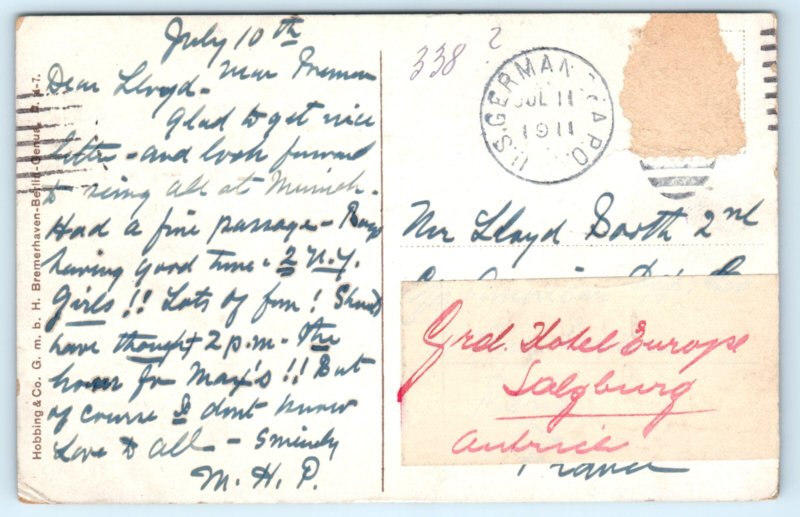 July 10th
Dear Lloyd - Near Bremen
Glad to get nice
letter - and look forward
to seing all at Munich.
Had a fine passage - Boys
having good time - 2 N.Y.
Girls !! Lots of fun !
have thought 2 p.m. - the
hour for Max's !! But
of course I dont know
Love to all - Sincerely
M. H. P.
Hobbing & Co. G. m. b. H. Bremerhaven-Berlin-Genua.
338 2
U.S. GERMAN
JUL 11
1911
Mr Lloyd Booth 2nd
Grd. Hotel Europe
Salzburg
Autrice
France